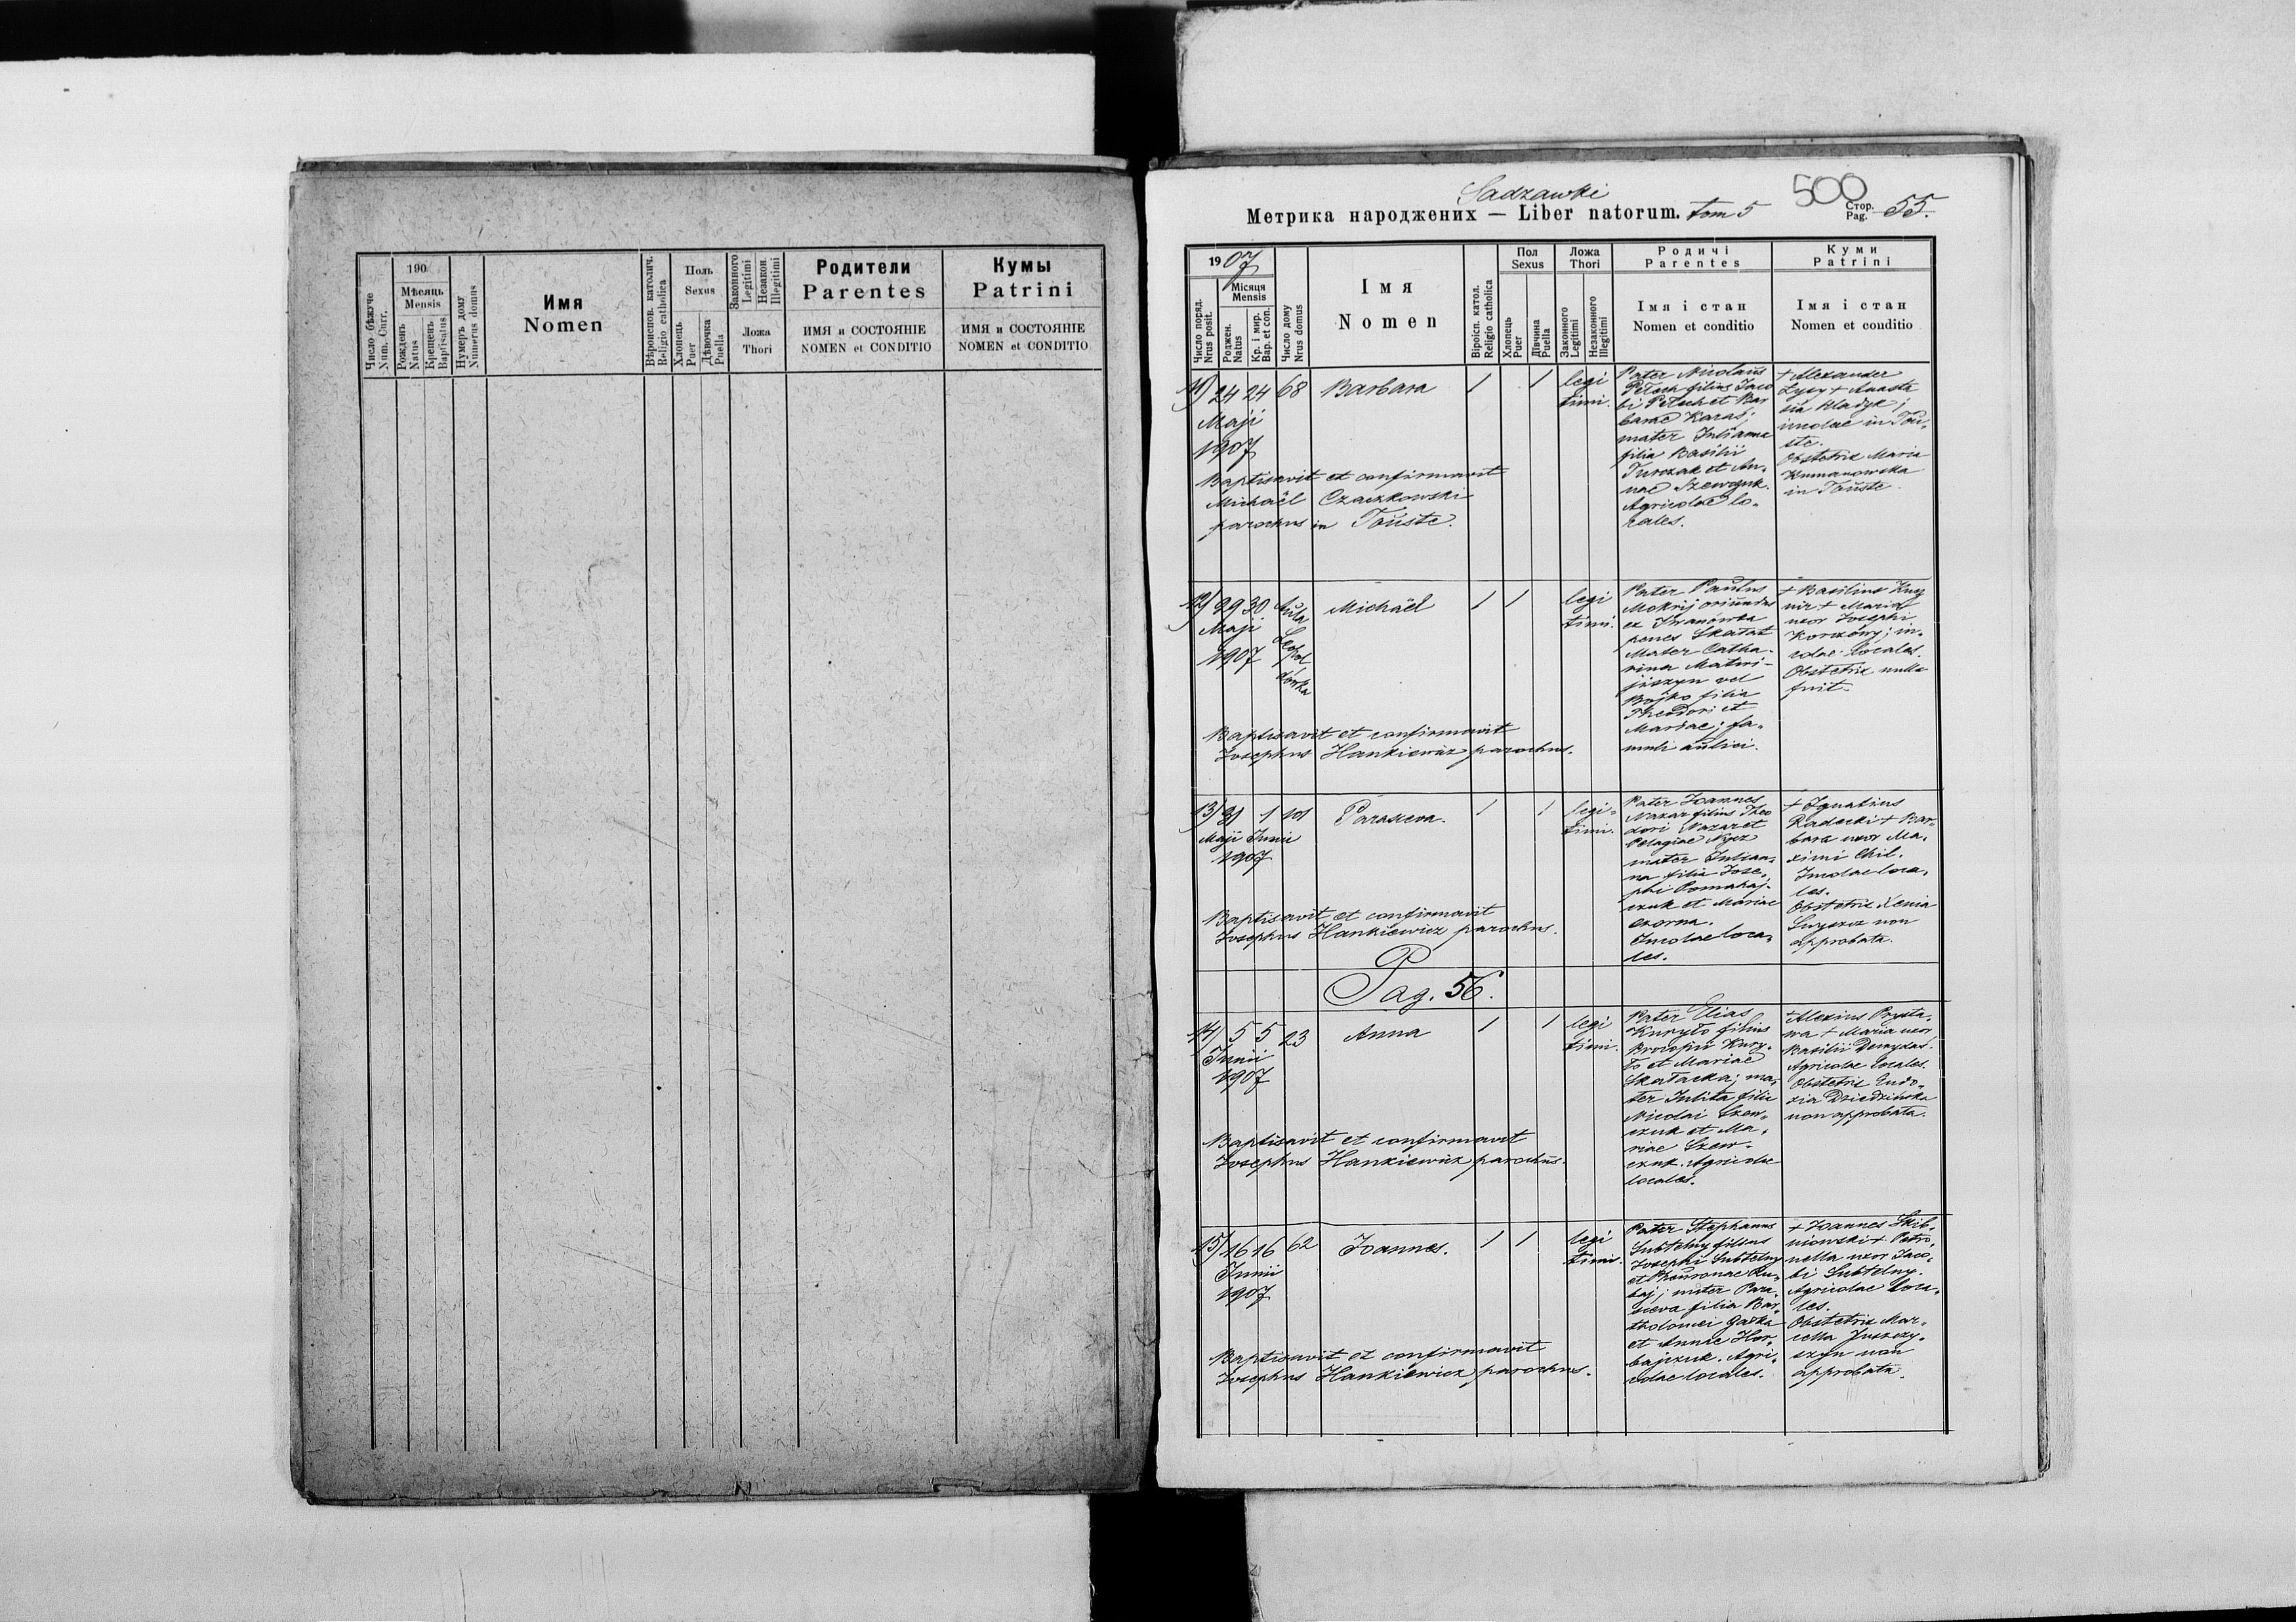 Число бѣжуче
Num. Curr.
190
Мѣсяць
Mensis
Рожденъ
Natus
Крещенъ
Baptisatus
Нумеръ дому
Numerus domus
Имя
Nomen
Вѣроиспов. католич.
Religio catholica
Поль
Sexus
Хлопець
Puer
Дѣвочка
Puella
Законного
Legitimi
Незакон.
Illegitimi
Ложа
Thori
Родители
Parentes
ИМЯ и СОСТОЯНІЕ
NOMEN et CONDITIO
Кумы
Patrini
ИМЯ и СОСТОЯНІЕ
NOMEN et CONDITIO
Sadzawki
500
Метрика народжених — Liber natorum. tom 5
Стор.
Pag. 55.
Число поряд.
Nrus posit.
1907
Місяця
Mensis
Роджен.
Natus
Кр. і мир.
Bap. et con.
Число дому
Nrus domus
Імя
Nomen
Віроісп. катол.
Religio catholica
Пол
Sexus
Хлопець
Puer
Дівчина
Puella
Ложа
Thori
Законного
Legitimi
Незаконного
Illegitimi
Родичі
Parentes
Імя і стан
Nomen et conditio
Куми
Patrini
Імя і стан
Nomen et conditio
11) 24 24 68 Barbara 1 1 legi
timi.
Maji
1907
Baptisavit et confirmavit
Michaël Czaczkowski
parochus in Touste.
Pater Nicolaus
Petuch filius Jaco
bi Petuch et Bar
barae Karaś;
mater Julianna
filia Basilii
Turczak et An-
nae Szewczuk.
Agricolae lo-
cales.
+ Alexander
Łysy + Anasta
sia Hładyk;
incolae in Tou-
ste.
Obstetrix Maria
Kumanowska
in Touste.
12) 29 30 Aula
Leopol
dówka
Michaël 1 1 legi
timi.
Maji
1907
Baptisavit et confirmavit
Josephus Hankiewicz parochus.
Pater Paulus
Mokrij oriundus
ex Iwanówka
penes Skałat
Mater Catha-
rina Matwi-
jiszyn vel
Bojko filia
Theodori et
Mariae; fa-
muli aulici.
+ Basilius Kusz
nir + Maria
uxor Josephi
Korzóny; in-
colae locales.
Obstetrix nulla
fuit.
13) 31 1 101 Parasceva. 1 1 legi-
timi.
Maji Junii
1907
Baptisavit et confirmavit
Josephus Hankiewicz parochus.
Pater Joannes
Nazar filius Theo
dori Nazar et
Pelagiae Kycz
mater Julian-
na filia Jose-
phi Pomahaj-
czuk et Mariae
Czorna.
Incolae loca-
les.
+ Ignatius
Radecki + Bar-
bara uxor Ma-
ximi Chil.
Incolae loca-
les.
Obstetrix Xenia
non
approbata.
Pag. 56.
14) 5 5 23 Anna 1 1 legi
timi.
Junii
1907
Baptisavit et confirmavit
Josephus Hankiewicz parochus.
Pater Elias
Kuryło filius
Procopii Kury-
ło et Mariae
Skałacka; ma-
ter Julita filia
Nicolai Szew-
czuk et Ma-
riae Szew-
czuk. Agricolae
locales.
+ Alexius Prysta-
wa + Maria uxor
Basilii Demydas.
Agricolae locales.
Obstetrix Eudo-
xia Dziedzińska
non approbata.
15) 16 16 62 Joannes. 1 1 legi
timi.
Junii
1907
Baptisavit et confirmavit
Josephus Hankiewicz parochus.
Pater Stephanus
Subtelny filius
Josephi Subtelny
et Rhu-
baj; mater Para-
sceva filia Bar-
tholomei Gałka
et Annae Hor-
bajczuk. Agri-
colae locales.
+ Joannes Skib-
niowski + Petro-
nella uxor Jaco-
bi Subtelny.
Agricolae loca-
les.
Obstetrix Mar-
cella Juszczy-
szyn non
approbata.